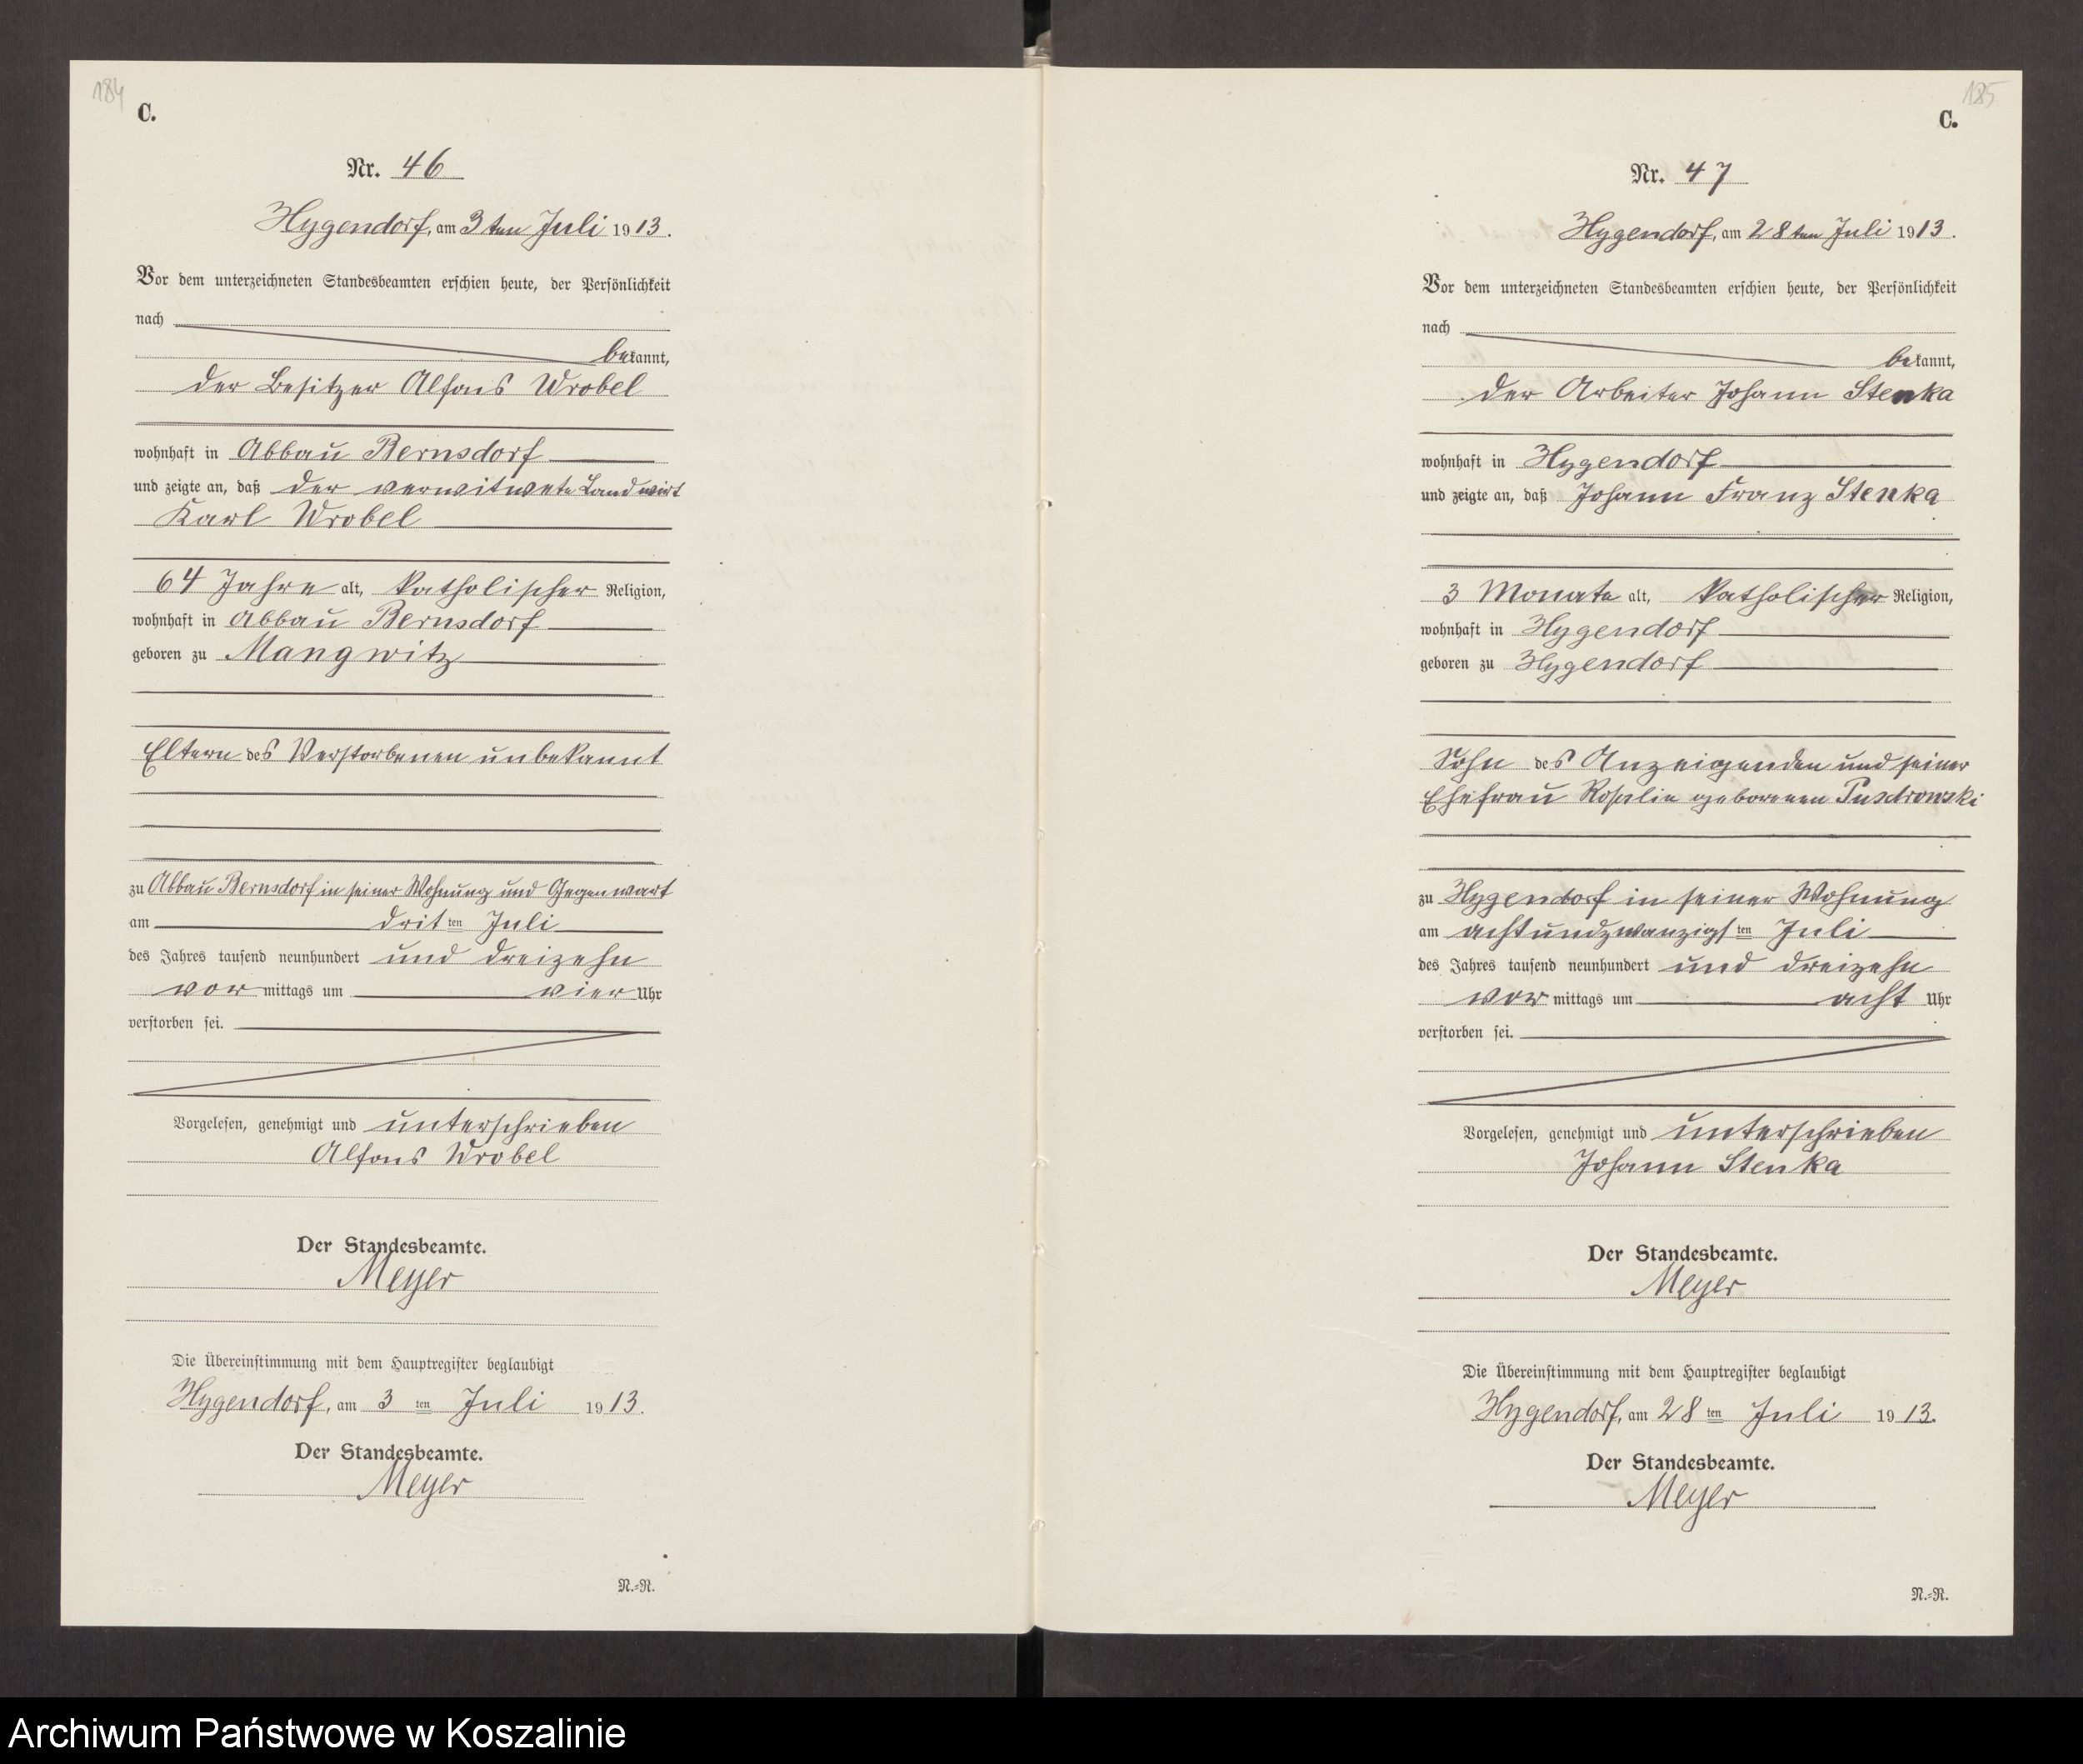 184
C.
Nr. 46
Hygendorf, am 3ten Juli 1913.
Vor dem unterzeichneten Standesbeamten erschien heute, der Persönlichkeit
nach
bekannt,
der Besitzer Alfons Wrobel
wohnhaft in Abbau Bernsdorf
und zeigte an, daß der verwitwete Landwirt
Karl Wrobel
64 Jahre alt, katholischer Religion,
wohnhaft in Abbau Bernsdorf
geboren zu Mangwitz
Eltern des Verstorbenen unbekannt
zu Abbau Bernsdorf in seiner Wohnung und Gegenwart
am dritten Juli
des Jahres tausend neunhundert und dreizehn
vormittags um vier Uhr
verstorben sei.
Vorgelesen, genehmigt und unterschrieben
Alfons Wrobel
Der Standesbeamte.
Meyer
Die Übereinstimmung mit dem Hauptregister beglaubigt
Hygendorf, am 3ten Juli 1913.
Der Standesbeamte.
Meyer
N.=R.
185
C.
Nr. 47
Hygendorf, am 28ten Juli 1913.
Vor dem unterzeichneten Standesbeamten erschien heute, der Persönlichkeit
nach
bekannt,
der Arbeiter Johann Stenka
wohnhaft in Hygendorf
und zeigte an, daß Johann Franz Stenka
3 Monate alt, katholischer Religion,
wohnhaft in Hygendorf
geboren zu Hygendorf
Sohn des Anzeigenden und seiner
Ehefrau Rosalie geborenen Pusdrowski
zu Hygendorf in seiner Wohnung
am achtundzwanzigsten Juli
des Jahres tausend neunhundert und dreizehn
vormittags um acht Uhr
verstorben sei.
Vorgelesen, genehmigt und unterschrieben
Johann Stenka
Der Standesbeamte.
Meyer
Die Übereinstimmung mit dem Hauptregister beglaubigt
Hygendorf, am 28ten Juli 1913.
Der Standesbeamte.
Meyer
N.=R.
Archiwum Państwowe w Koszalinie